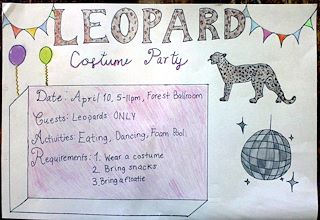 LEOPARD
Costume Party
Date: April 10, 5-11pm, Forest Ballroom
Guests: Leopards ONLY
Activities: Eating, Dancing, Foam Pool
Requirements: 1. Wear a costume
2. Bring snacks
3. Bring a floatie